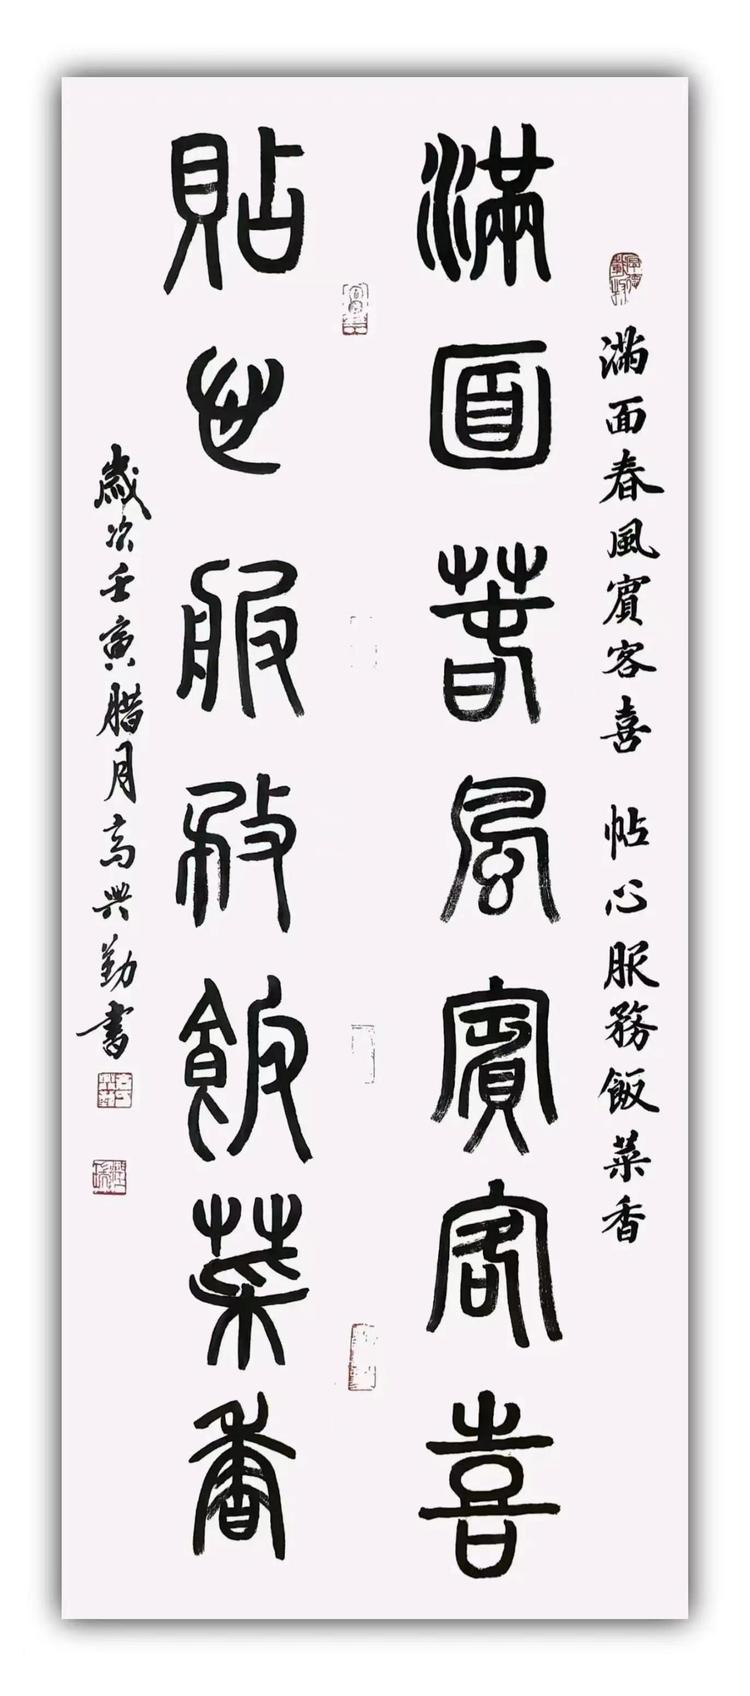 滿面春風賓客喜 帖心服務飯菜香
滿面春風賓客喜
貼心服務飯菜香
歲次壬寅腊月高興勤書